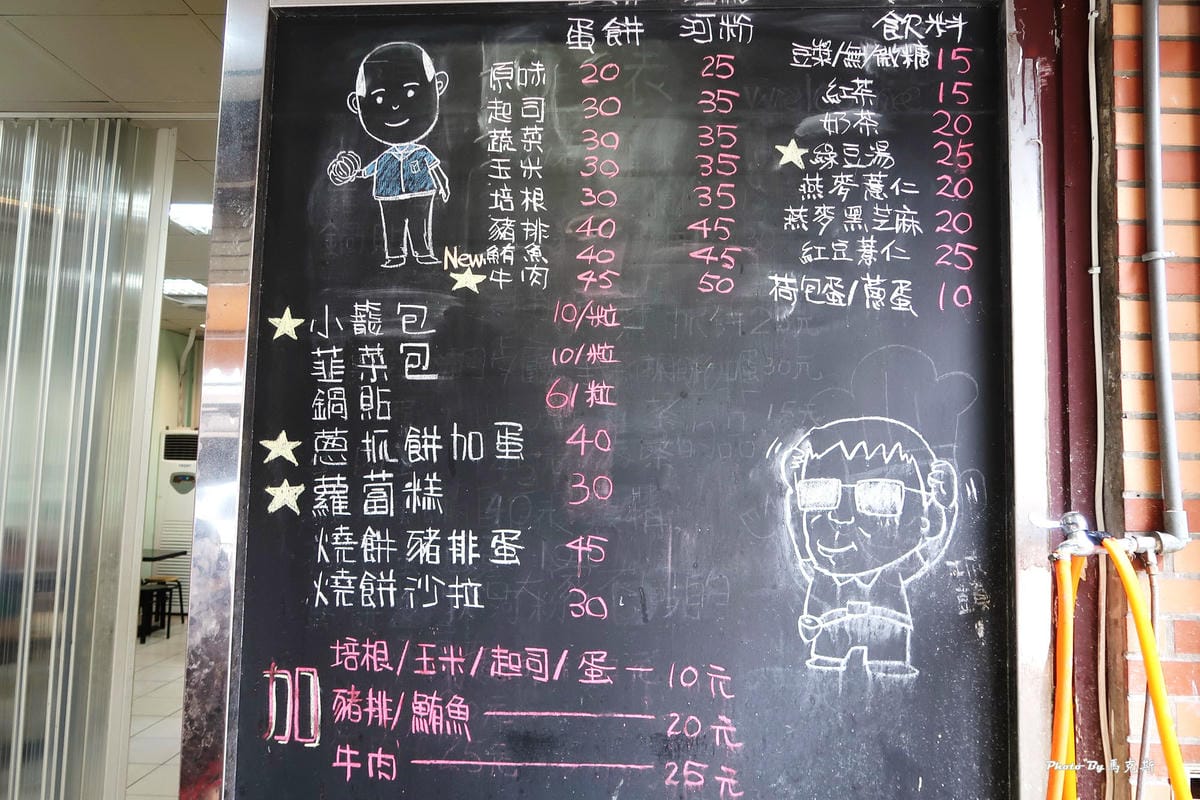 蛋餅 河粉
原味 20 25
起司 30 35
蔬菜 30 35
玉米 30 35
培根 30 35
豬排 40 45
鮪魚 40 45
New 牛肉 45 50
飲料
豆漿/無/微糖 15
紅茶 15
奶茶 20
綠豆湯 25
燕麥薏仁 20
燕麥黑芝麻 20
紅豆薏仁 25
荷包蛋/蔥蛋 10
小籠包 10/粒
韮菜包 10/粒
鍋貼 6/粒
蔥抓餅加蛋 40
蘿蔔糕 30
燒餅豬排蛋 45
燒餅沙拉 30
加
培根/玉米/起司/蛋 — 10元
豬排/鮪魚 — 20元
牛肉 — 25元
Photo By 馬克斯